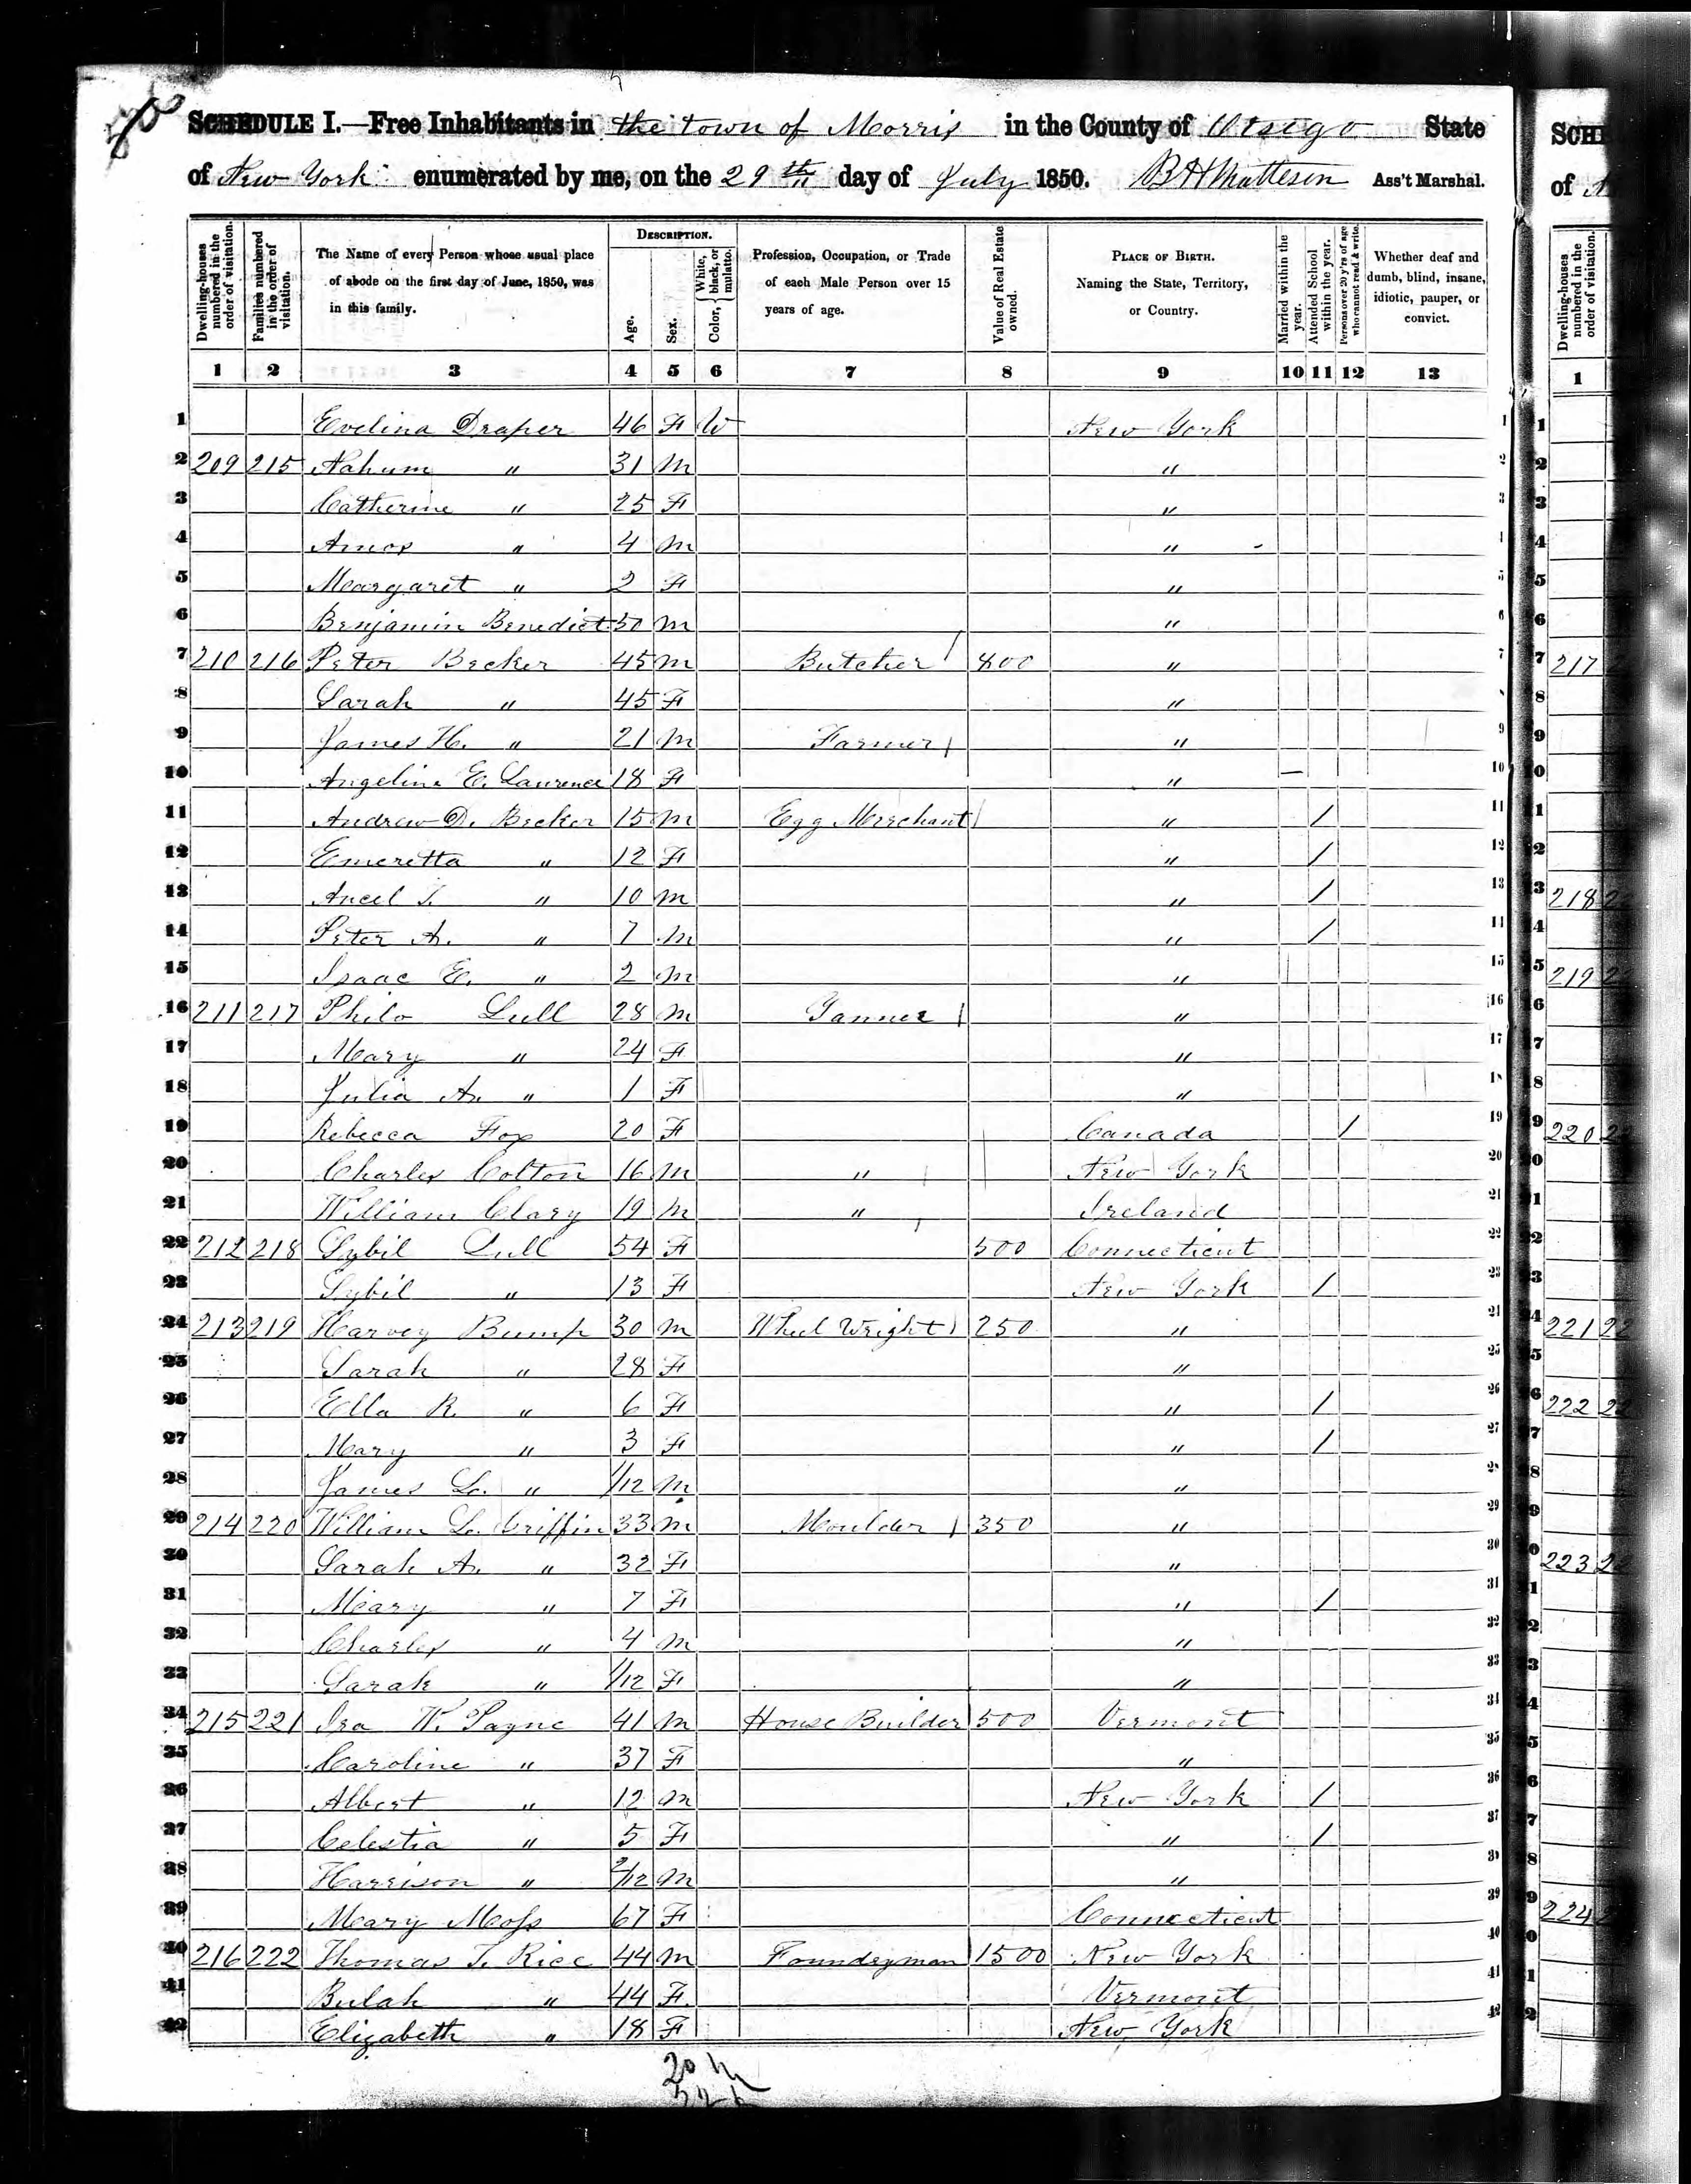 SCHEDULE I.—Free Inhabitants in the town of Morris in the County of Otsego State
of New York enumerated by me, on the 29th day of July 1850. B H Matteson Ass't Marshal.
Dwelling-houses numbered in the order of visitation.
Families numbered in the order of visitation.
The Name of every Person whose usual place of abode on the first day of June, 1850, was in this family.
DESCRIPTION.
Age.
Sex.
Color, { White, black, or mulatto.
Profession, Occupation, or Trade of each Male Person over 15 years of age.
Value of Real Estate owned.
PLACE OF BIRTH. Naming the State, Territory, or Country.
Married within the year.
Attended School within the year.
Persons over 20 y'rs of age who cannot read & write.
Whether deaf and dumb, blind, insane, idiotic, pauper, or convict.
1 2 3 4 5 6 7 8 9 10 11 12 13
1 Evelina Draper 46 F W New York 1
2 209 215 Nahum " 31 M " 2
3 Catherine " 25 F " 3
4 Amos " 4 M "
5 Margaret " 2 F " 5
6 Benjamin Benedict 50 M " 6
7 210 216 Peter Becker 45 M Butcher / 800 " 7
8 Sarah " 45 F "
9 James H. " 21 M Farmer / " 9
10 Angeline E. Laurence 18 F " — 10
11 Andrew D. Becker 15 M Egg Merchant / " / 11
12 Emeretta " 12 F " / 12
13 Ancel T. " 10 M " / 13
14 Peter A. " 7 M " / 14
15 Isaac E. " 2 M " 15
16 211 217 Philo Lull 28 M Tanner / " 16
17 Mary " 24 F " 17
18 Julia A. " 1 F " 18
19 Rebecca Fox 20 F Canada / 19
20 Charles Colton 16 M " / New York 20
21 William Clary 19 M " / Ireland 21
22 212 218 Sybil Lull 54 F 500 Connecticut 22
23 Sybil " 13 F New York / 23
24 213 219 Harvey Bump 30 M Wheel Wright / 250 " 24
25 Sarah " 28 F " 25
26 Ella R. " 6 F " / 26
27 Mary " 3 F " / 27
28 James L. " 1/12 M " 28
29 214 220 William L. Griffin 33 M Moulder / 350 " 29
30 Sarah A. " 32 F " 30
31 Mary " 7 F " / 31
32 Charles " 4 M " 32
33 Sarah " 1/12 F " 33
34 215 221 Ira W. Payne 41 M House Builder 500 Vermont 34
35 Caroline " 37 F " 35
36 Albert " 12 M New York / 36
37 Celestia " 5 F " / 37
38 Harrison " 2/12 M " 38
39 Mary Moss 67 F Connecticut 39
40 216 222 Thomas T. Rice 44 M Foundryman 1500 New York 40
41 Bulah " 44 F. Vermont 41
42 Elizabeth " 18 F New York 42
20
SCHE
of
Dwelling-houses numbered in the order of visitation.
1
217
218
219
220
221
222
223
224